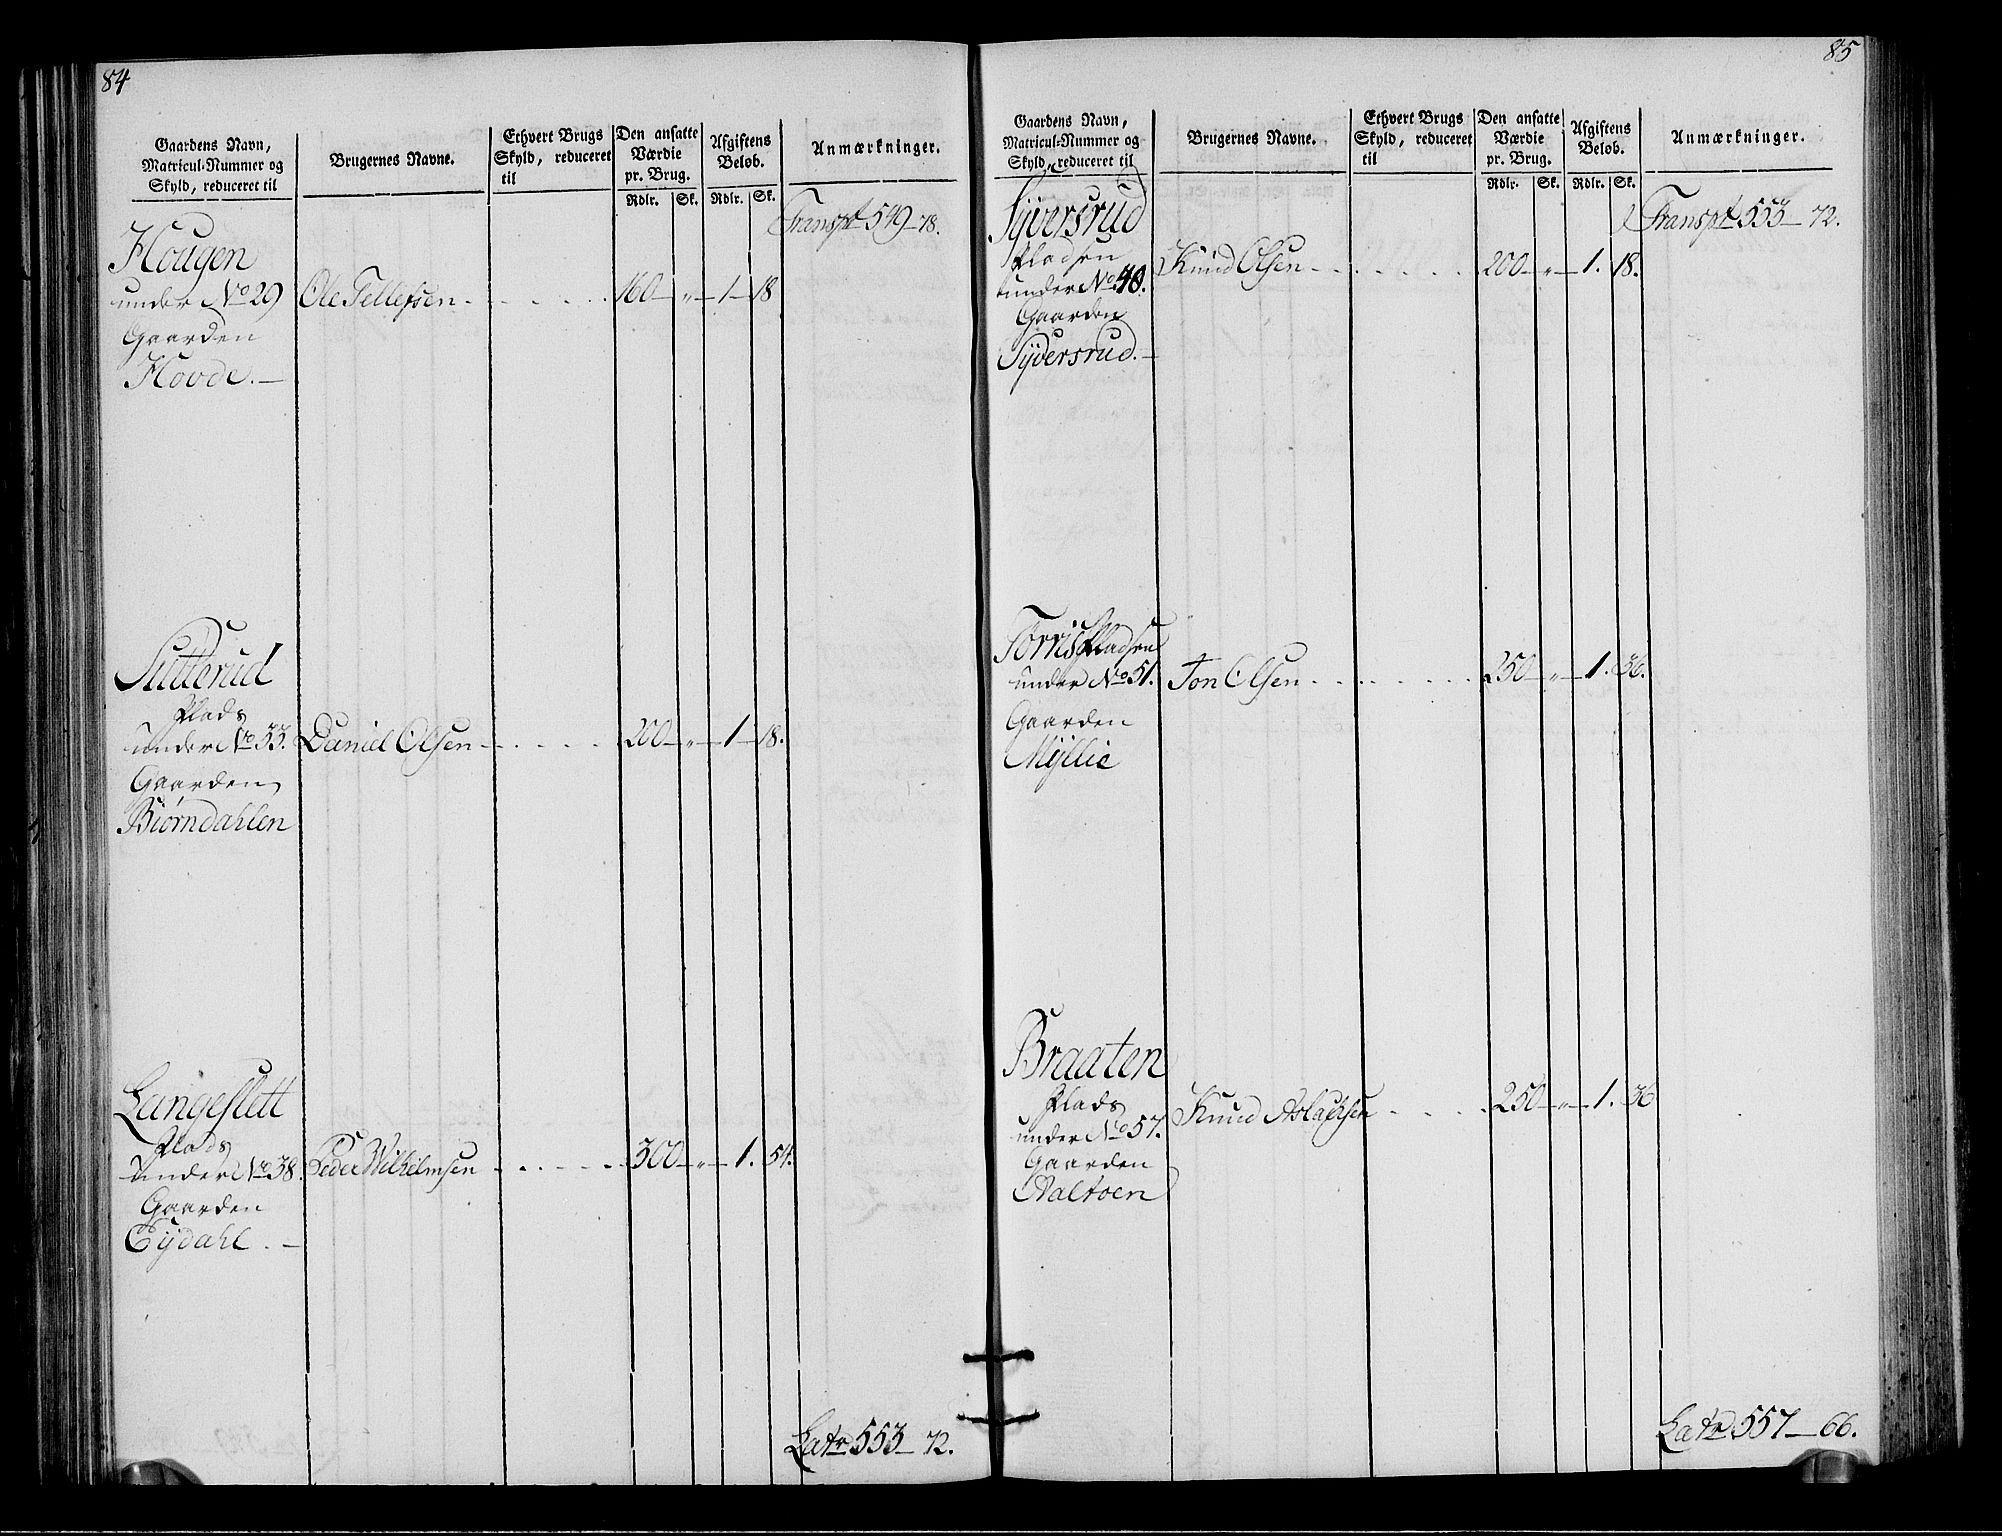 84
Gaardens Navn,
Matricul-Nummer og
Skyld, reduceret til
Brugernes Navne.
Ethvert Brugs
Skyld, reduceret
til
Den ansatte
Værdie
pr. Brug.
Rdlr. Sk.
Afgiftens
Beløb.
Rdlr. Sk.
Anmærkninger.
Transpt 549-78.
Hougen
under No 29 Ole Tellefsen 160 " 1 18
Gaarden
Hovde.
Sutterud
Plads
under No 33. Daniel Olsen 200 " 1 18.
Gaarden
Biørndahlen
Langeslett
Plads
under No 38. Peder Wilhelmsen 300 " 1. 54.
Gaarden
Eydahl.
Latr 553-72.
85
Gaardens Navn,
Matricul-Nummer og
Skyld, reduceret til
Brugernes Navne.
Ethvert Brugs
Skyld, reduceret
til
Den ansatte
Værdie
pr. Brug.
Rdlr. Sk.
Afgiftens
Beløb.
Rdlr. Sk.
Anmærkninger.
Transpt 553-72.
Syversrud
Pladsen
under No 48. Knud Olsen 200 " 1. 18.
Gaarden
Syversrud.
Torrispladsen
under No 51. Jon Olsen 250 " 1. 36.
Gaarden
Myllie
Braaten
Plads
under No 57. Knud Aslachsen 250 " 1. 36
Gaarden
Aaltoen
Latr 557-66.